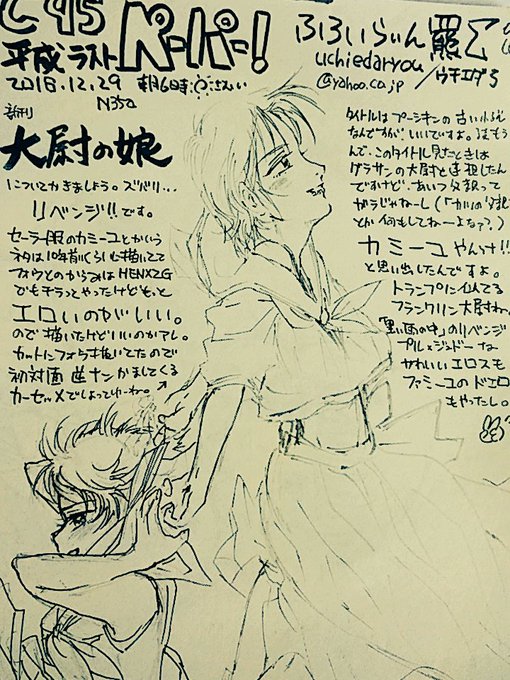 C95
平成ラスト ペーパー!
2018.12.29 朝6時
N35a
ふろいらいん
uchiedaryou
@yahoo.co.jp / ウチエダ
新刊
大尉の娘
についてかきましょう。ズバリ…
リベンジ!!です。
セーラー服のカミーユとかいう
ネタは10年前くらいにも描いてて
フォウとのからみはHENXZG
でもチラッとやったけどもっと
エロいのがいい。
ので描いたけどいいのかアレ。
カットにフォウ描いてたので
初対面逆ナンかましてくる
カーセッ×でしょってゆーね。
タイトルはプーシキンの古い
なんですが、いいですよ。
んで、このタイトル見たときは
グラサンの大尉と連想したん
ですけど、あいつ父親って
ガラじゃねーし(「カミーユの父親」
とか何もしてねーよな?)
カミーユやんけ!!
と思い出したんですよ。
トランプに似てる
フランクリン大尉ね。
「黒い雨の中」のリベンジ
プル×ジュドーな
かわいいエロスも
ファミーユのドエロ
もやったし。